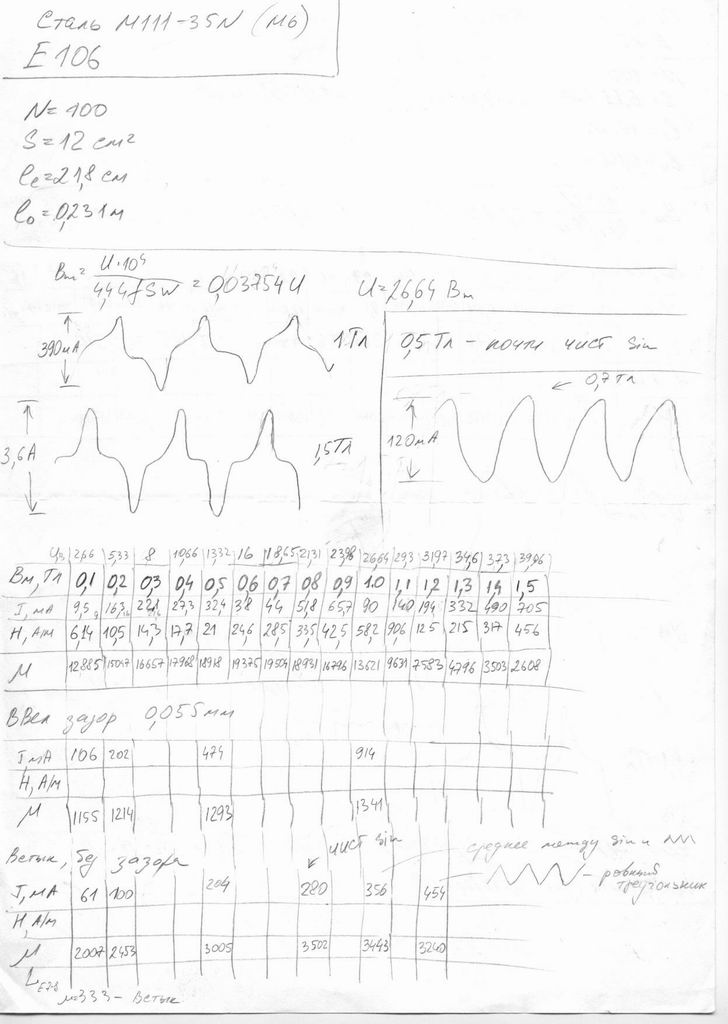 Сталь М111-35N (М6)
E106
N=100
S=12 см²
lс=21,8 см
lо=0,231 м
Bm= U·10⁴ / 4,44fSw = 0,03754U
U=26,64 Bm
390мА
1Тл
0,5Тл - почти чист sin
0,7Тл
120мА
3,6А
1,5Тл
U,В 2,66 5,33 8 10,66 13,32 16 18,65 21,31 23,98 26,64 29,3 31,97 34,6 37,3 39,96
Bм,Тл 0,1 0,2 0,3 0,4 0,5 0,6 0,7 0,8 0,9 1.0 1,1 1,2 1,3 1,4 1,5
I, мА 9,5 16,3 22,1 27,3 32,4 38 44 51,8 65,7 90 140 194 332 490 705
H, А/м 6,14 10,5 14,3 17,7 21 24,6 28,5 33,5 42,5 58,2 90,6 125 215 317 456
М 12885 15047 16657 17968 18918 19375 19504 18931 16796 13621 9631 7583 4796 3503 2608
Ввел зазор 0,055мм
I мА 106 202 474 914
H, А/м
М 1155 1214 1293 1341
Встык, без зазора
чист sin
среднее между sin и
ровный треугольник
I, мА 61 100 204 280 356 454
H, А/м
М 2007 2453 3005 3502 3443 3240
м=333 - Встык